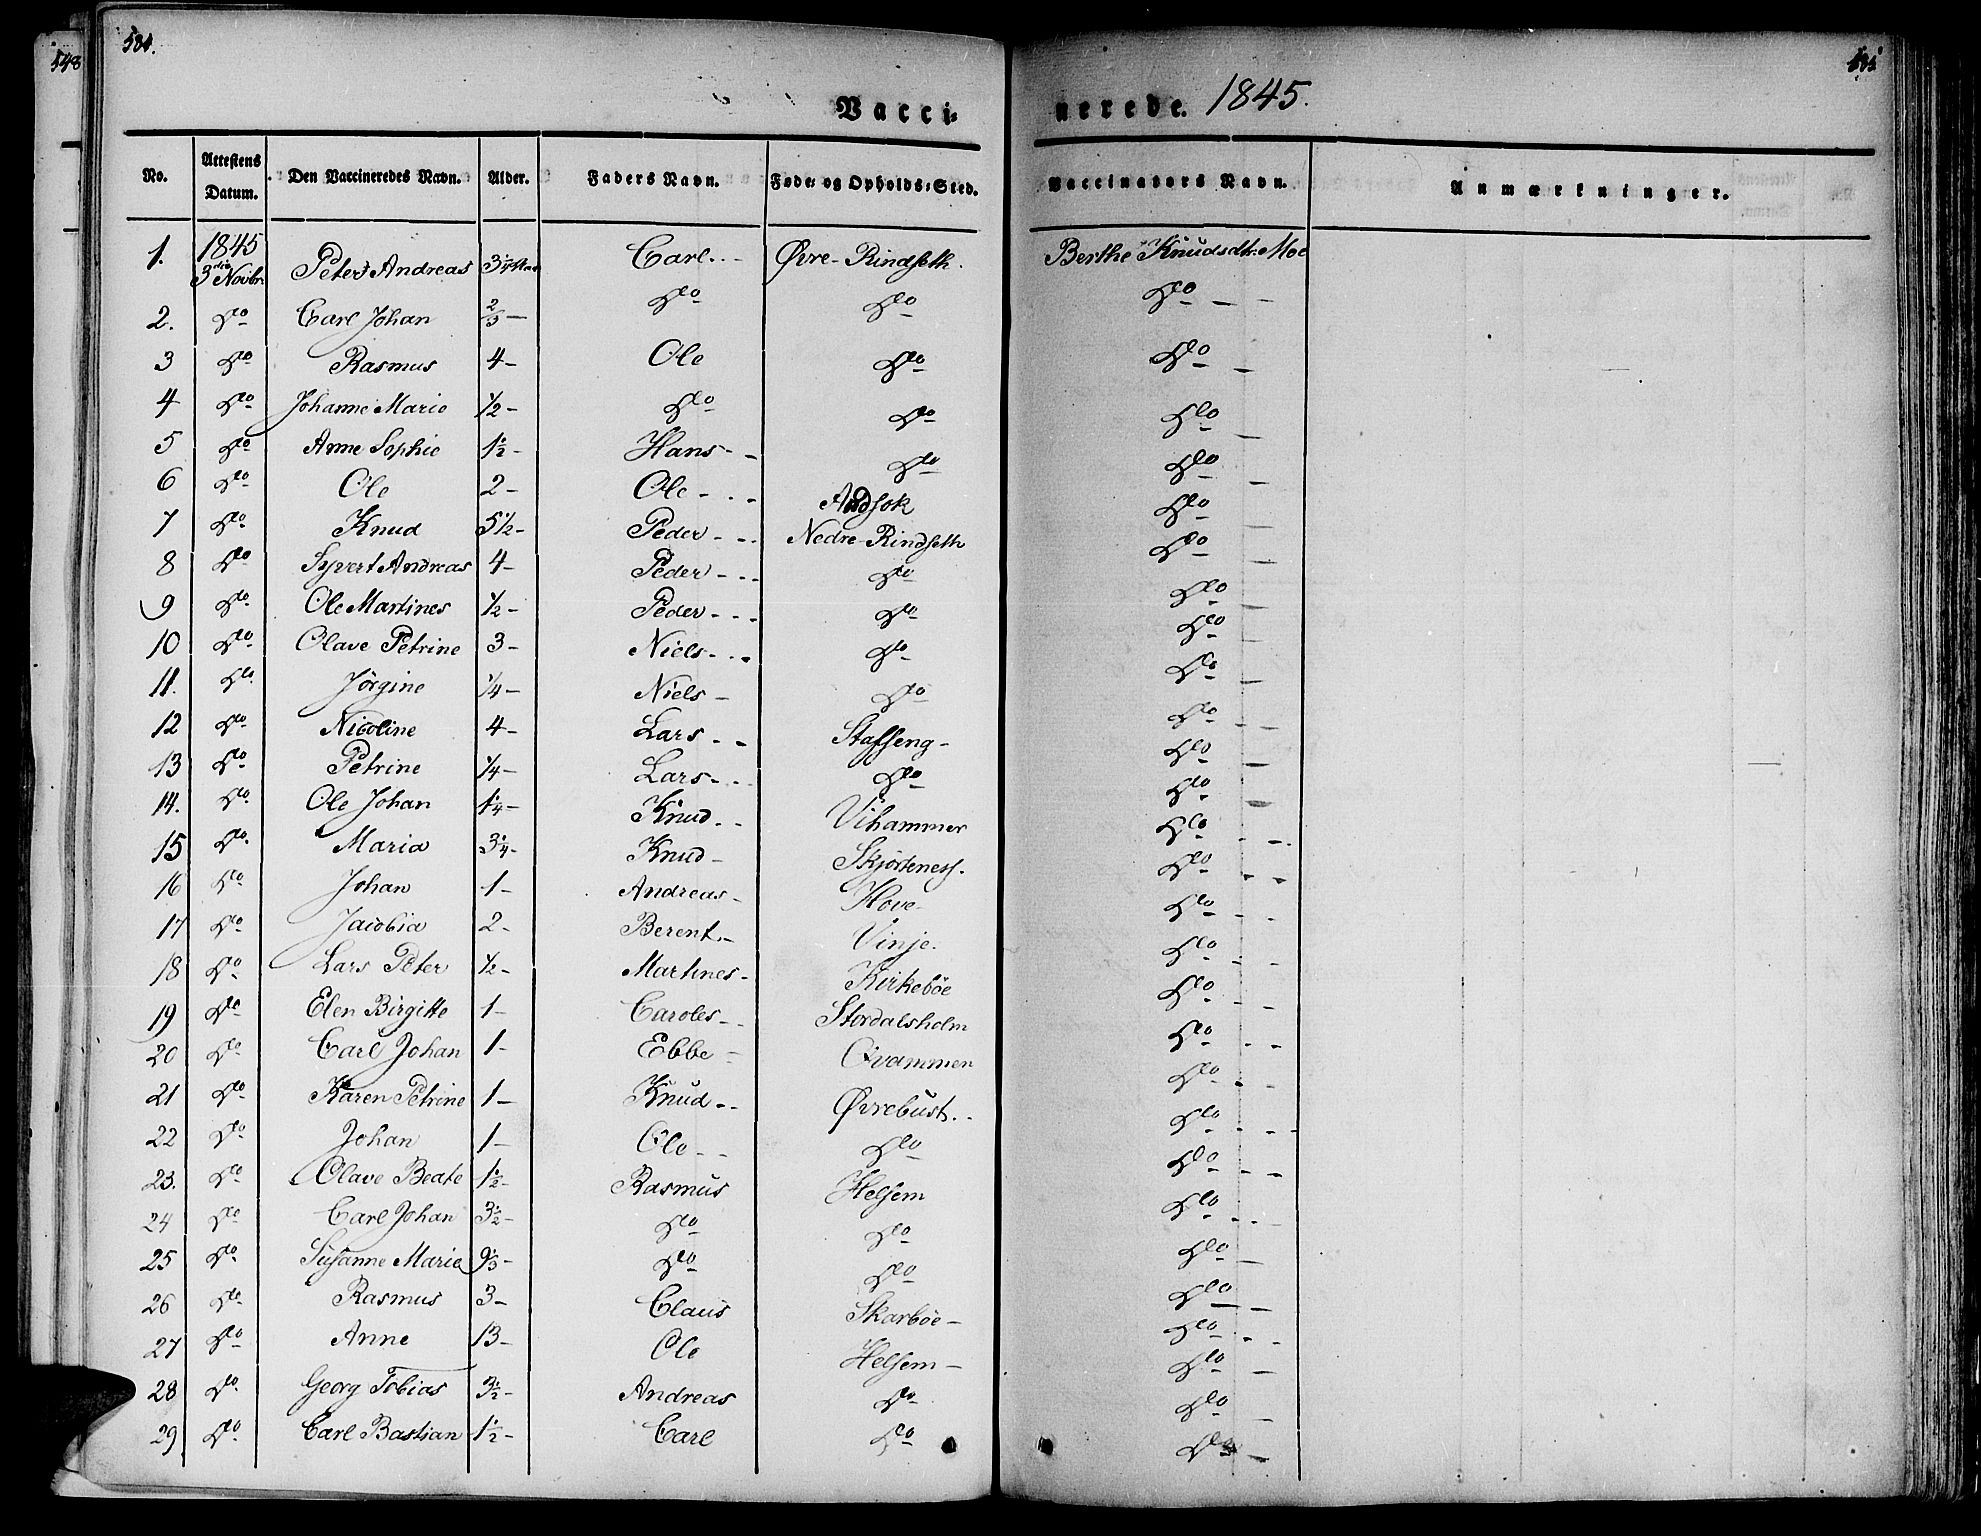 548
Vaccinerede. 1845.
No. | Attestens Datum. | Den Vaccineredes Navn. | Alder. | Faders Navn. | Føde- og Opholds-Sted. | Vaccinators Navn. | Anmærkninger.
1. | 1845 3die Novbr. | Peter Andreas | 3 | Carl | Øvre-Rindseth. | Berthe Knudsdtr. Moe
2. | Do | Carl Johan | 2/3 | Do | Do | Do
3 | Do | Rasmus | 4 | Ole | Do | Do
4 | Do | Johanne Marie | 1/2 | Do | Do | Do
5 | Do | Anne Sophie | 1 1/2 | Hans | Do | Do
6 | Do | Ole | 2 | Ole | | Do
7 | Do | Knud | 5 1/2 | Peder | Nedre-Rindseth | Do
8 | Do | Syvert Andreas | 4 | Peder | Do | Do
9 | Do | Ole Martines | 1/2 | Peder | Do | Do
10 | Do | Olave Petrine | 3 | Niels | Do | Do
11. | Do | Jørgine | 1/4 | Niels | Do | Do
12 | Do | Nicoline | 4 | Lars | Staffseng | Do
13 | Do | Petrine | 1/4 | Lars | Do | Do
14. | Do | Ole Johan | 1 1/4 | Knud | Vihammer | Do
15 | Do | Maria | 3 1/4 | Knud | Skjorteness. | Do
16 | Do | Johan | 1 | Andreas | Hove | Do
17 | Do | Jacobia | 2 | Berent | Vinje. | Do
18 | Do | Lars Peter | 1/2 | Martines | Kirkebøe | Do
19 | Do | Elen Birgitte | 1 | Caroles | Stordalsholm | Do
20 | Do | Carl Johan | 1 | Ebbe | Qvammen | Do
21 | Do | Karen Petrine | 1 | Knud | Øvrebust | Do
22 | Do | Johan | 1 | Ole | Do | Do
23. | Do | Olave Beate | 1 1/2 | Rasmus | Helsem | Do
24 | Do | Carl Johan | 3 1/2 | Do | Do | Do
25 | Do | Susanne Marie | 9 1/3 | Do | Do | Do
26 | Do | Rasmus | 3 | Claus | Skarbøe | Do
27 | Do | Anne | 13 | Ole | Helsem | Do
28 | Do | Georg Tobias | 3 1/2 | Andreas | Do | Do
29 | Do | Carl Bastian | 1 1/2 | Carl | Do | Do